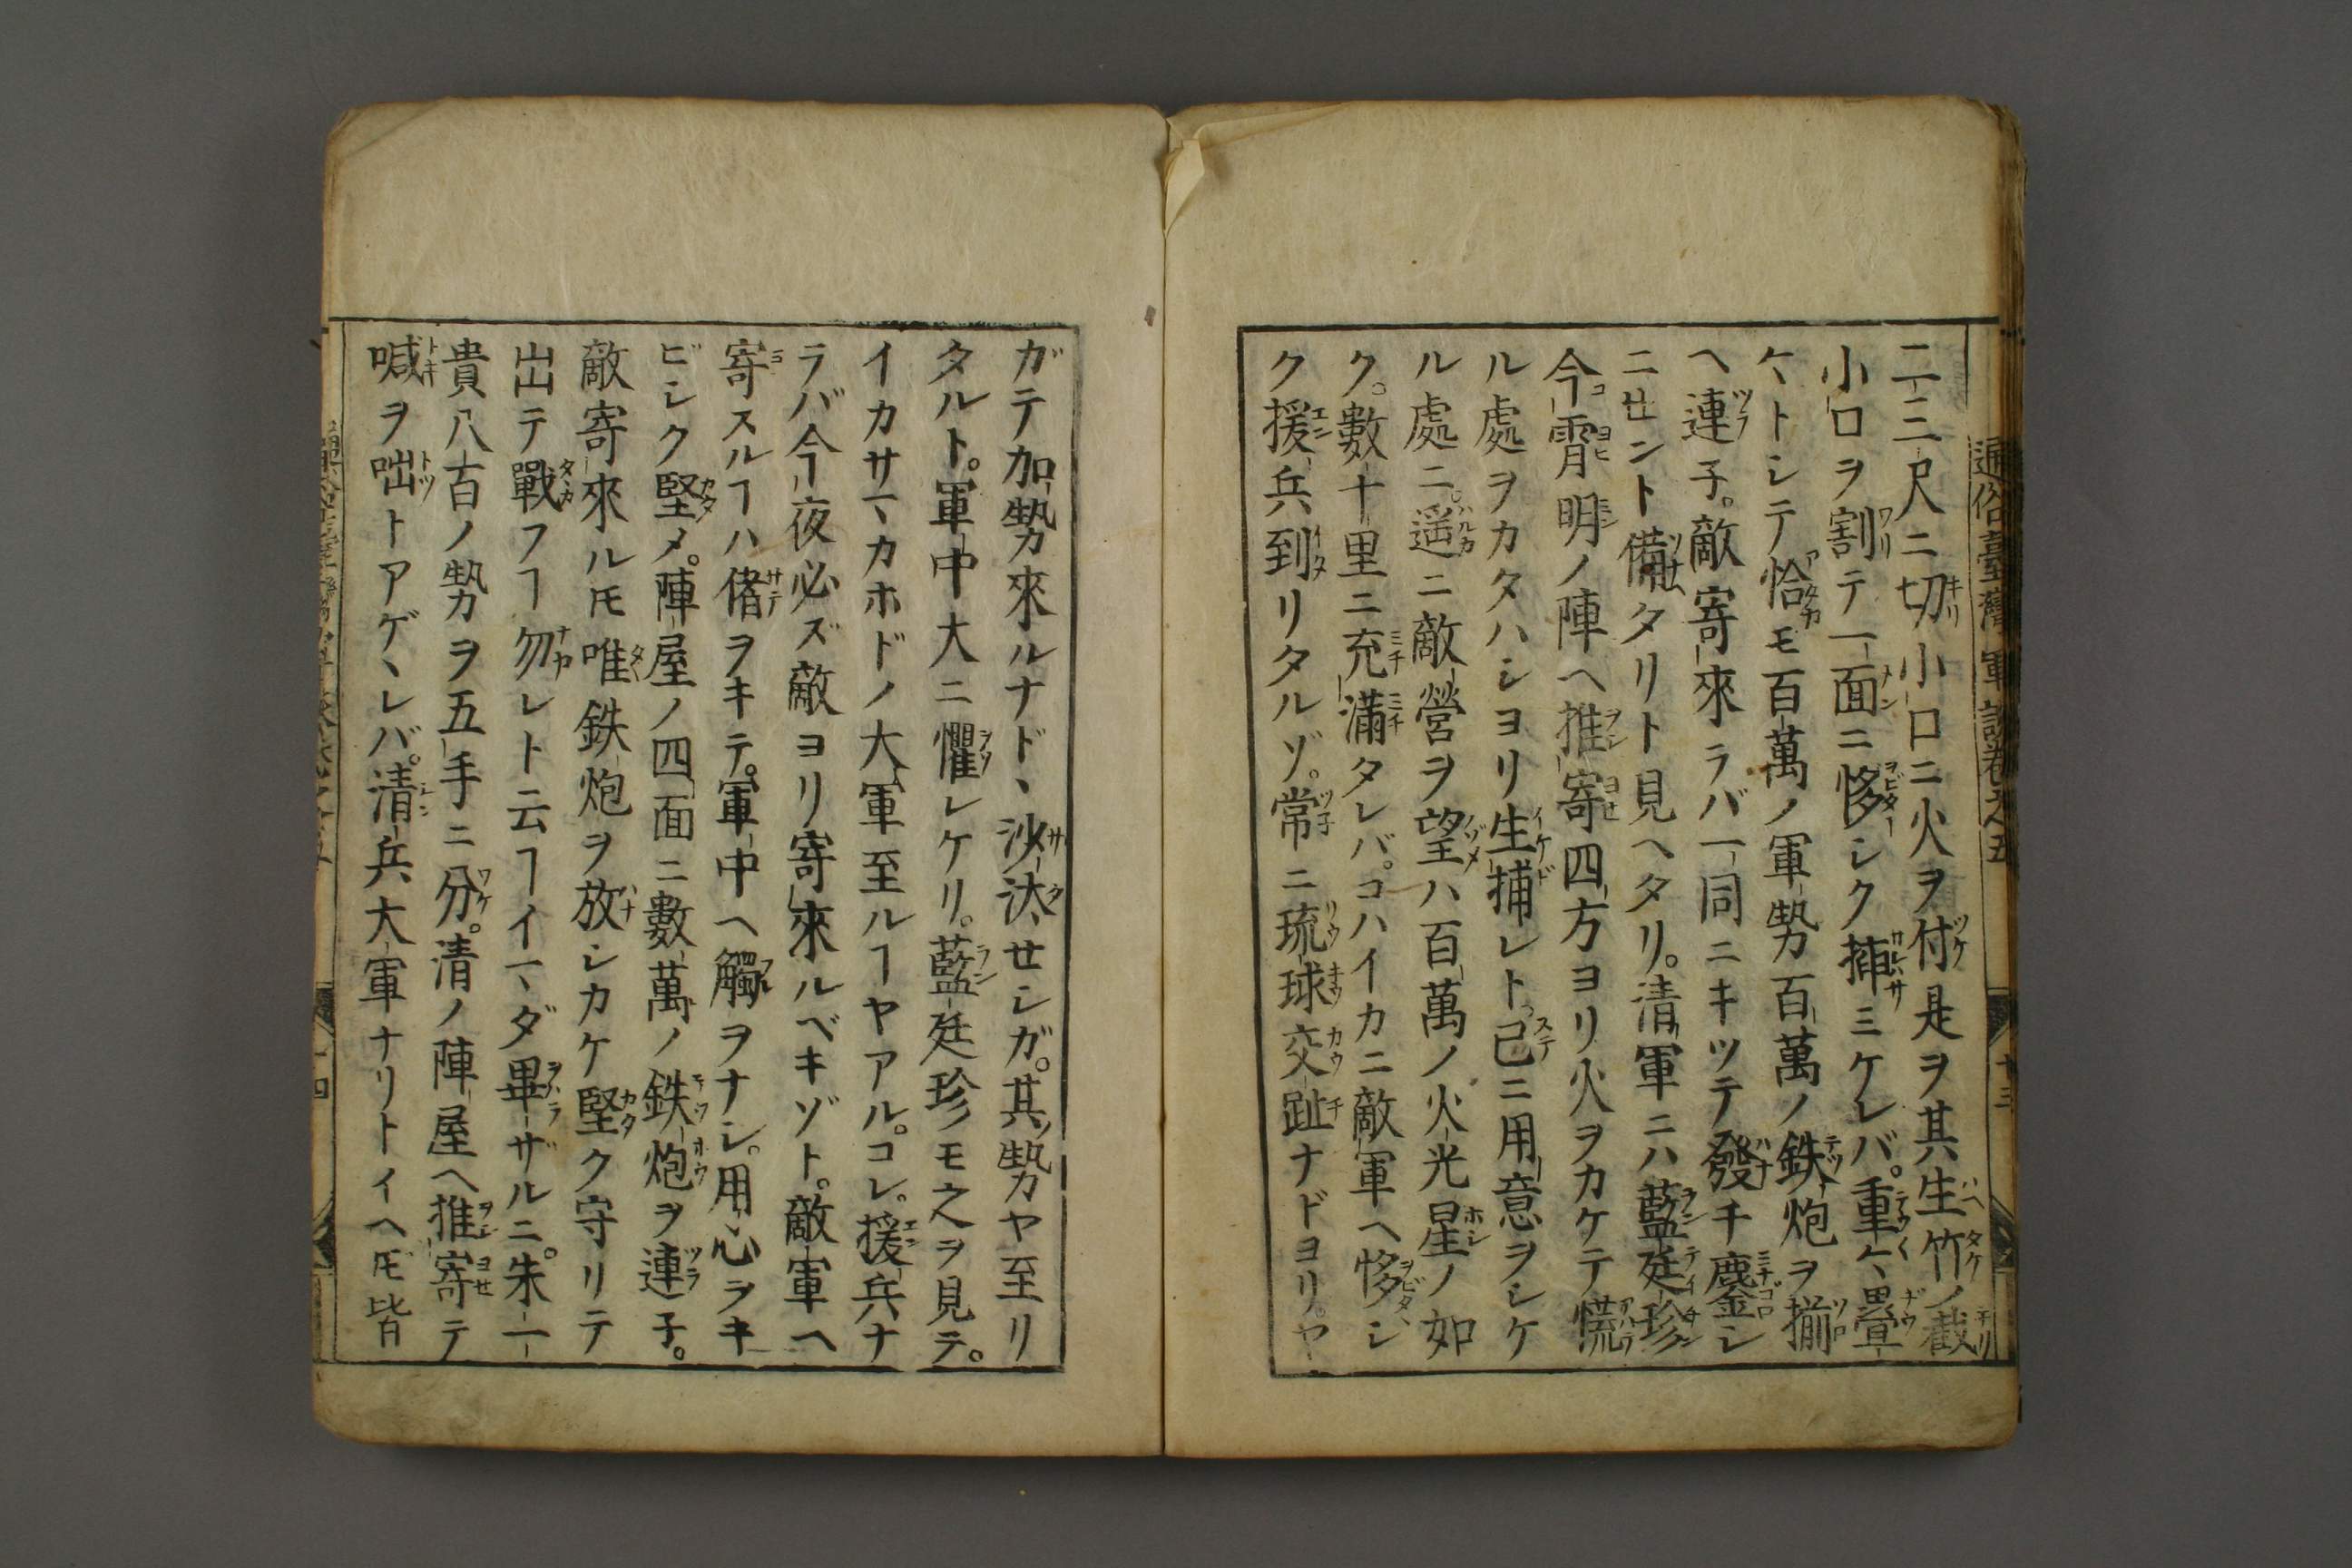 通俗臺灣軍談卷之五
十三
二三尺ニ切小口ニ火ヲ付是ヲ其生竹ノ截
小口ヲ割テ一面ニ夥シク挿ミケレバ。重ヶ疊
ケトシテ恰モ百萬ノ軍勢百萬ノ鉄炮ヲ揃
ヘ連子。敵寄來ラバ一同ニキツテ發チ鏖シ
ニセント備タリト見ヘタリ。清軍ニハ藍廷珍
今霄明ノ陣ヘ推寄四方ヨリ火ヲカケテ慌
ル處ヲカタハシヨリ生捕レト。已ニ用意ヲシケ
ル處ニ。遥ニ敵營ヲ望ハ百萬ノ火光星ノ如
ク。數十里ニ充滿タレバ。コハイカニ敵軍ヘ夥シ
ク援兵到リタルゾ。常ニ琉球交趾ナドヨリ。ヤ
ガテ加勢來ルナド、沙汰セシガ。其勢ヤ至リ
タルト。軍中大ニ懼レケリ。藍廷珍モ之ヲ見テ。
イカサマカホドノ大軍至ルヿヤアル。コレ援兵ナ
ラバ今夜必ズ敵ヨリ寄來ルベキゾト。敵軍ヘ
寄スルヿハ偖ヲキテ。軍中ヘ觸ヲナシ。用心ヲキ
ビシク堅メ。陣屋ノ四面ニ數萬ノ鉄炮ヲ連子。
敵寄來ルモ唯鉄炮ヲ放シカケ堅ク守リテ
出テ戰フヿ勿レト云ヿイマダ畢ザルニ。朱一
貴八百ノ勢ヲ五手ニ分。清ノ陣屋ヘ推寄テ
喊ヲ咄トアゲヽレバ。清兵大軍ナリトイヘ𪜈皆
十四